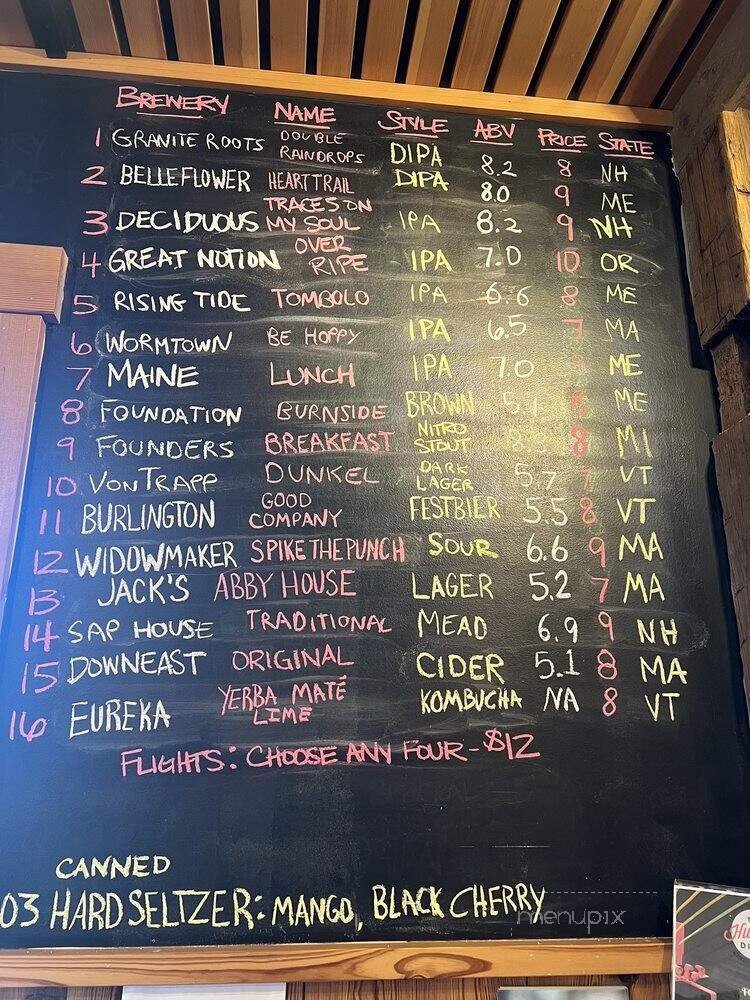 BREWERY NAME STYLE ABV PRICE STATE
1 GRANITE ROOTS DOUBLE RAINDROPS DIPA 8.2 8 NH
2 BELLEFLOWER HEART TRAIL DIPA 8.0 9 ME
3 DECIDUOUS TRACES ON MY SOUL IPA 8.2 9 NH
4 GREAT NOTION OVER RIPE IPA 7.0 10 OR
5 RISING TIDE TOMBOLO IPA 6.6 8 ME
6 WORMTOWN BE HOPPY IPA 6.5 7 MA
7 MAINE LUNCH IPA 7.0 ME
8 FOUNDATION BURNSIDE BROWN 8 ME
9 FOUNDERS BREAKFAST NITRO STOUT 8 MI
10 VONTRAPP DUNKEL DARK LAGER 5.7 7 VT
11 BURLINGTON GOOD COMPANY FESTBIER 5.5 8 VT
12 WIDOWMAKER SPIKE THE PUNCH SOUR 6.6 9 MA
13 JACK'S ABBY HOUSE LAGER 5.2 7 MA
14 SAP HOUSE TRADITIONAL MEAD 6.9 9 NH
15 DOWNEAST ORIGINAL CIDER 5.1 8 MA
16 EUREKA YERBA MATÉ LIME KOMBUCHA NA 8 VT
FLIGHTS: CHOOSE ANY FOUR - $12
CANNED
03 HARD SELTZER: MANGO, BLACK CHERRY
menupix